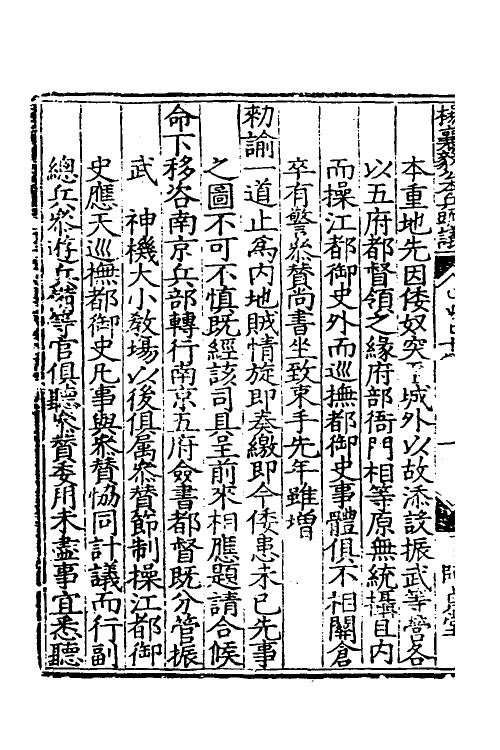 楊襄毅公本兵疏議
本重地先因倭奴突至城外以故添設振武等營各
以五府都督領之緣府部衙門相等原無統攝且內
而操江都御史外而巡撫都御史事體俱不相關倉
卒有警叅贊尚書坐致束手先年雖增
勑諭一道止為內地賊情旋即奏繳即今倭患未已先事
之圖不可不慎既經該司具呈前來相應題請合候
命下移咨南京兵部轉行南京五府僉書都督既分管振
武 神機大小教場以後俱屬叅贊節制操江都御
史應天巡撫都御史凡事與叅贊恊同計議而行副
總兵叅遊兵備等官俱聽叅贊委用未盡事宜悉聽